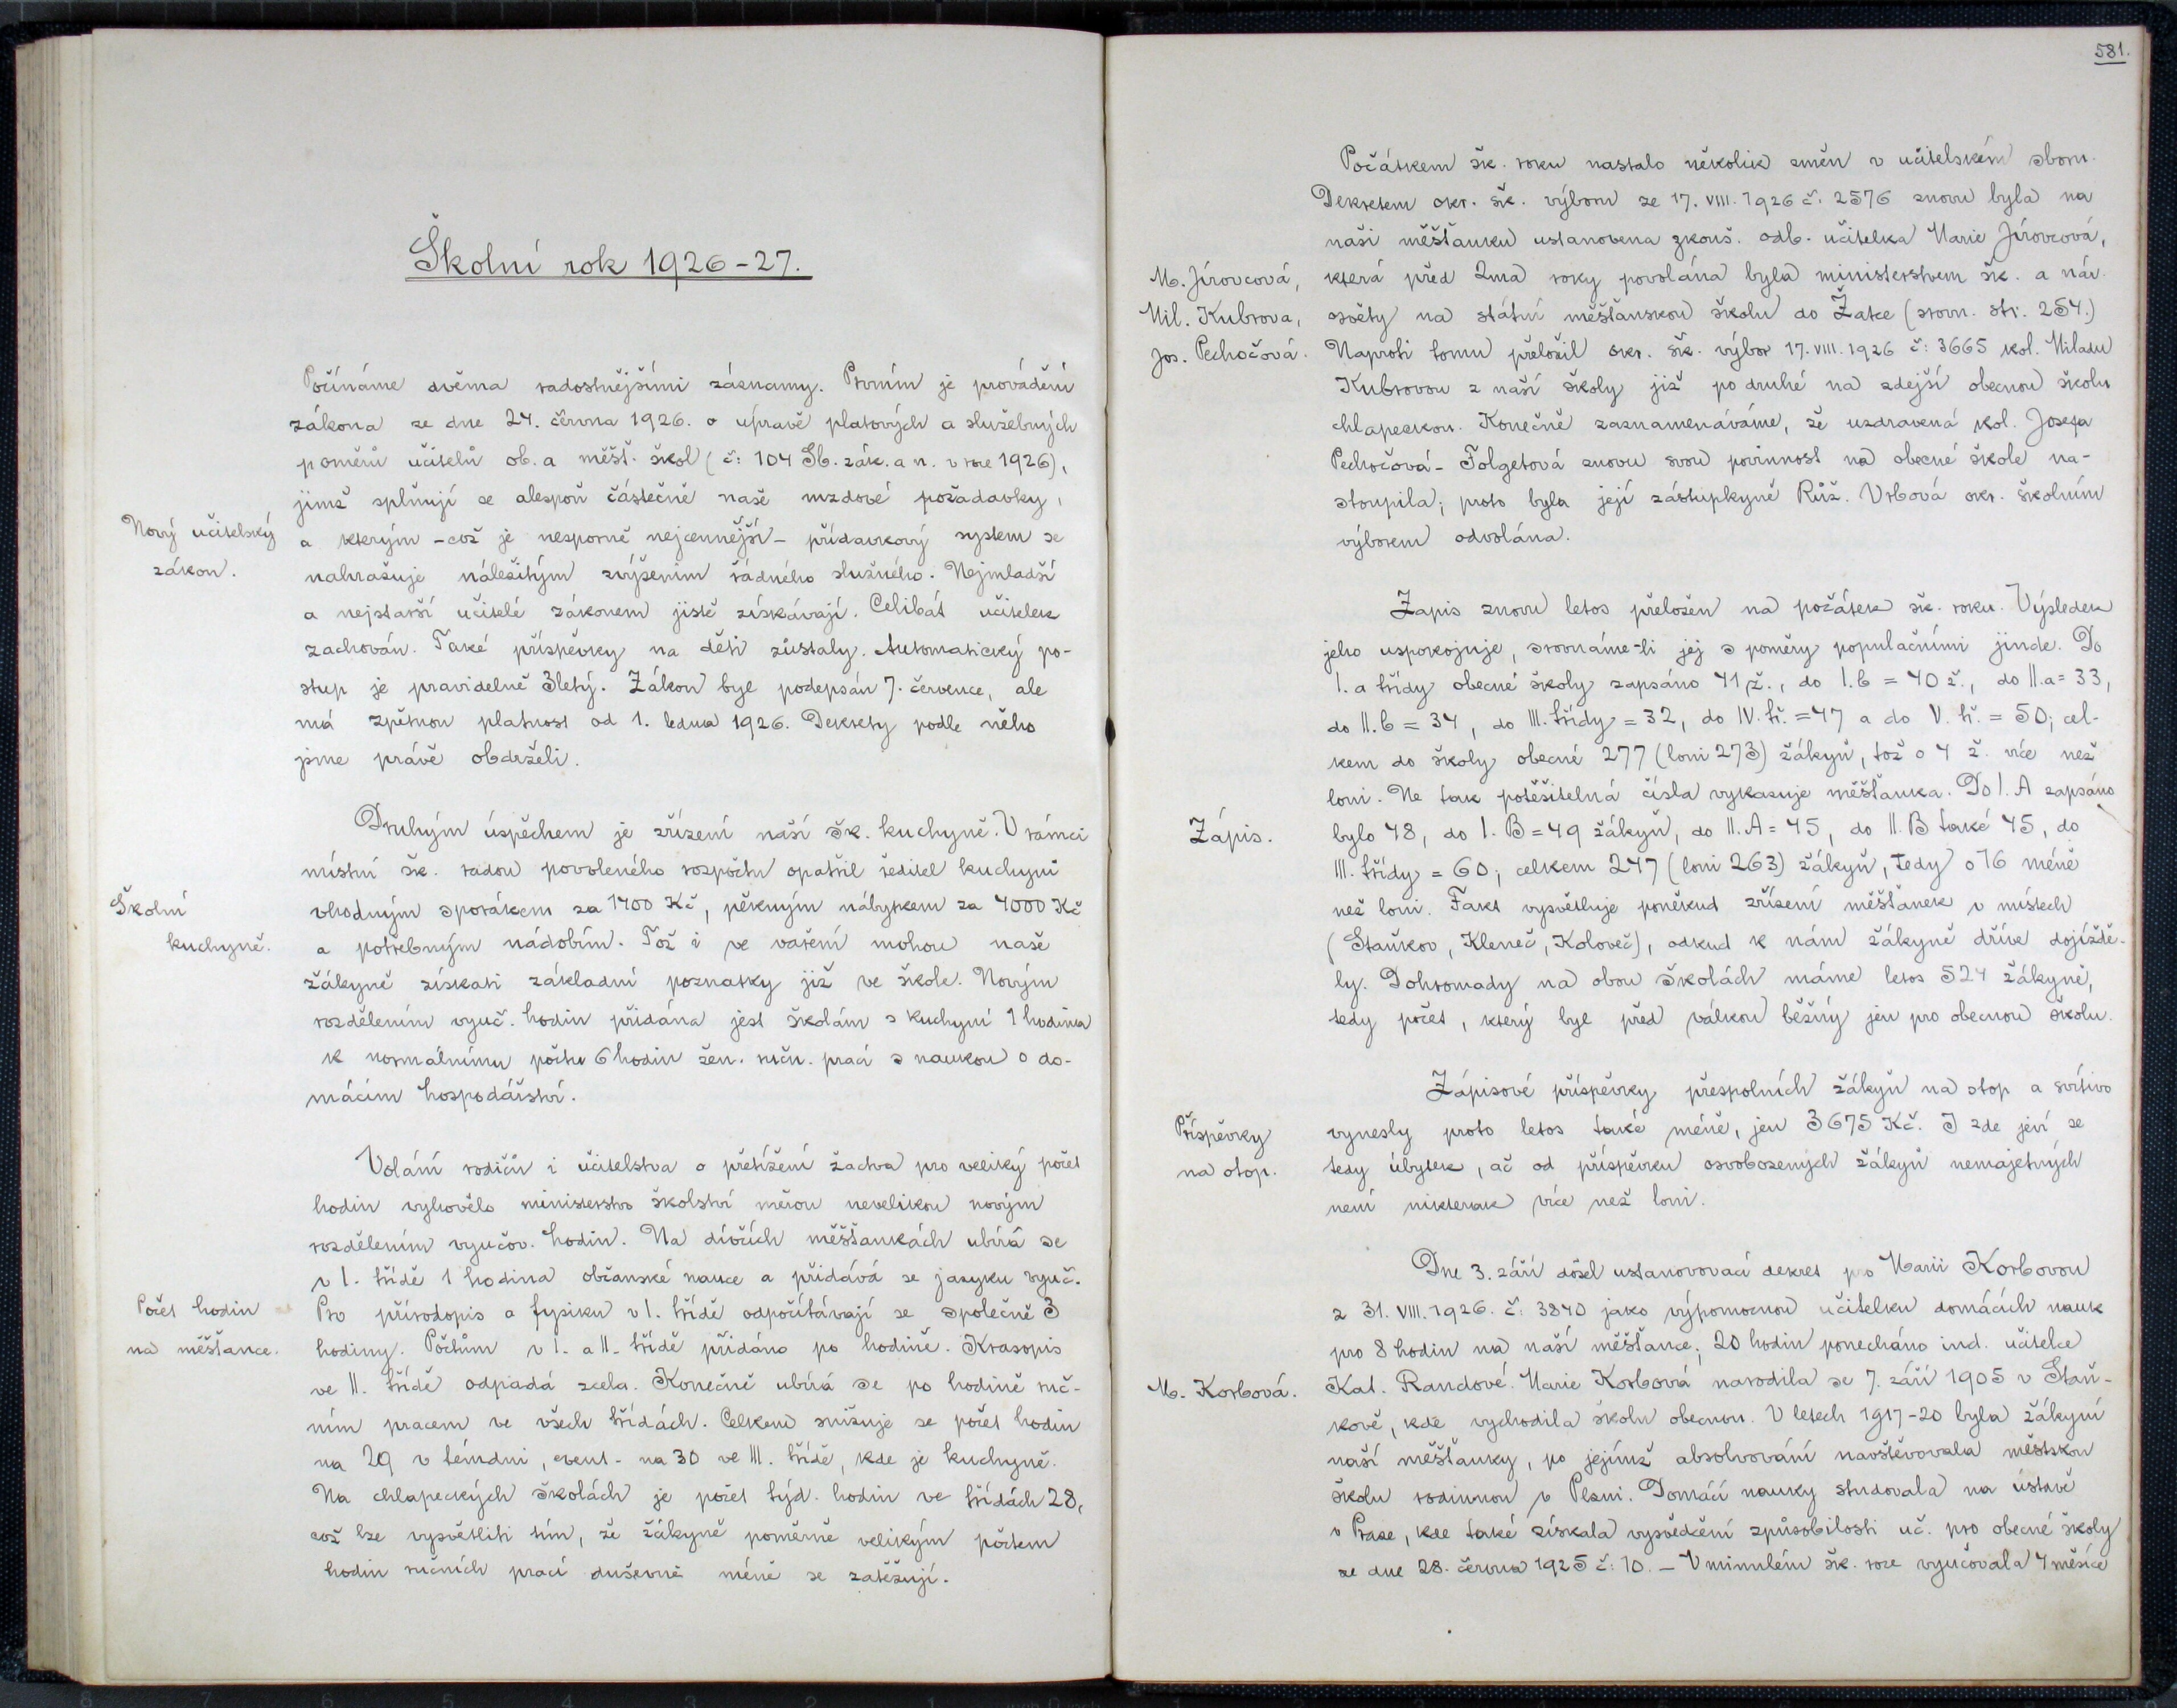 Školní rok 1926-27.
Počínáme dvěma radostnějšími záznamy. Prvním je provádění
zákona ze dne 24. června 1926. o úpravě platových a služebných
poměrů učitelů ob. a měšť. škol (č: 104 Sb. zák. a n. v roce 1926),
jímž splňují se alespoň částečně naše mzdové požadavky,
Nový učitelský
zákon.
a kterým - což je nesporně nejcennější - přídavkový system se
nahražuje náležitým zvýšením řádného služného. Nejmladší
a nejstarší učitelé zákonem jistě získávají. Celibát učitelek
zachován. Také příspěvky na děti zůstaly. Automatický po-
stup je pravidelně 3letý. Zákon byl podepsán 7. července, ale
má zpětnou platnost od 1. ledna 1926. Dekrety podle něho
jsme právě obdrželi.
Druhým úspěchem je zřízení naší šk. kuchyně. V rámci
místní šk. radou povoleného rozpočtu opatřil ředitel kuchyni
Školní
kuchyně.
vhodným sporákem za 1400 Kč, pěkným nábytkem za 4000 Kč
a potřebným nádobím. Tož i ve vaření mohou naše
žákyně získati základní poznatky již ve škole. Novým
rozdělením vyuč. hodin přidána jest školám s kuchyní 1 hodina
k normálnímu počtu 6 hodin žen. ručn. prací s naukou o do-
mácím hospodářství.
Volání rodičů i učitelstva o přetížení žactva pro veliký počet
hodin vyhovělo ministerstvo školství měrou nevelikou novým
rozdělením vyučov. hodin. Na dívčích měšťankách ubírá se
v I. třídě 1 hodina občanské nauce a přidává se jazyku vyuč.
Počet hodin
na měšťance.
Pro přírodopis a fysiku v I. třídě odpočítávají se společně 3
hodiny. Počtům v I. a II. třídě přidáno po hodině. Krasopis
ve II. třídě odpadá zcela. Konečně ubírá se po hodině ruč-
ním pracem ve všech třídách. Celkem snižuje se počet hodin
na 29 v témdni, event. na 30 ve III. třídě, kde je kuchyně.
Na chlapeckých školách je počet týd. hodin ve třídách 28,
což lze vysvětliti tím, že žákyně poměrně velikým počtem
hodin ručních prací duševně méně se zatěžují.
581.
Počátkem šk. roku nastalo několik změn v učitelském sboru.
Dekretem okr. šk. výboru ze 17. VIII. 1926 č. 2576 znovu byla na
naši měšťanku ustanovena zkouš. odb. učitelka Marie Jírovcová,
M. Jírovcová,
Mil. Kubrova,
Jos. Pechočová.
která před 2ma roky povolána byla ministerstvem šk. a nár.
osvěty na státní měšťanskou školu do Žatce (srovn. str. 254.)
Naproti tomu přeložil okr. šk. výbor 17. VIII. 1926 č: 3665 kol. Miladu
Kúbrovou z naší školy již po druhé na zdejší obecnou školu
chlapeckou. Konečně zaznamenáváme, že uzdravená kol. Josefa
Pechočová-Folgetová znovu svou povinnost na obecné škole na-
stoupila; proto byla její zástupkyně Růž. Vrbová okr. školním
výborem odvolána.
Zapis znovu letos přeložen na počátek šk. roku. Výsledek
jeho uspokojuje, srovnáme-li jej s poměry populačními jinde. Do
I. a třídy obecné školy zapsáno 41 ž., do I. b = 40 ž., do II. a = 33,
do II. b = 34, do III. třídy = 32, do IV. tř. = 47 a do V. tř. = 50; cel-
kem do školy obecné 277 (loni 273) žákyň, tož o 4 ž. více než
loni. Ne tak potěšitelná čísla vykazuje měšťanka. Do I. A zapsáno
Zápis.
bylo 48, do I. B = 49 žákyň, do II. A = 45, do II. B také 45, do
III. třídy = 60; celkem 247 (loni 263) žákyň, tedy o 16 méně
než loni. Fakt vysvětluje poněkud zřízení měšťanek v místech
(Staňkov, Kleneč, Koloveč), odkud k nám žákyně dříve dojíždě-
ly. Dohromady na obou školách máme letos 524 žákyně,
tedy počet, který byl před válkou běžný jen pro obecnou školu.
Zápisové příspěvky přespolních žákyň na otop a svítivo
Příspěvky
na otop.
vynesly proto letos také méně, jen 3675 Kč. I zde jeví se
tedy úbytek, ač od příspěvku osvobozených žákyň nemajetných
není nikterak více než loni.
Dne 3. září došel ustanovovací dekret pro Marii Korbovou
z 31. VIII. 1926. č: 3840 jako výpomocnou učitelku domácích nauk
pro 8 hodin na naší měšťance; 20 hodin ponecháno ind. učitelce
M. Korbová.
Kat. Randové. Marie Korbová narodila se 7. září 1905 v Staň-
kově, kde vychodila školu obecnou. V letech 1917-20 byla žákyní
naší měšťanky, po jejímž absolvování navštěvovala městskou
školu rodinnou v Plzni. Domácí nauky studovala na ústavě
v Praze, kde také získala vysvědčení způsobilosti uč. pro obecné školy
ze dne 28. června 1925 č: 10. - V minulém šk. roce vyučovala 4 měsíce